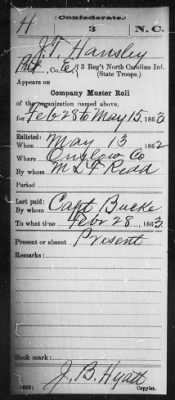 (Confederate.)
H 3 N. C.
J. T. Hansley
Pvt, Co. E, 3 Reg't North Carolina Inf.
(State Troops.)
Appears on
Company Muster Roll
of the organization named above,
for Feb 28 to May 15, 1863
Enlisted:
When May 13 1862
Where Onslow Co
By whom M L F Redd
Period
Last paid:
By whom Capt Bucke
To what time Febr 28, 1863
Present or absent Present
Remarks:
Book mark:
J. B. Hyatt
Copyist.